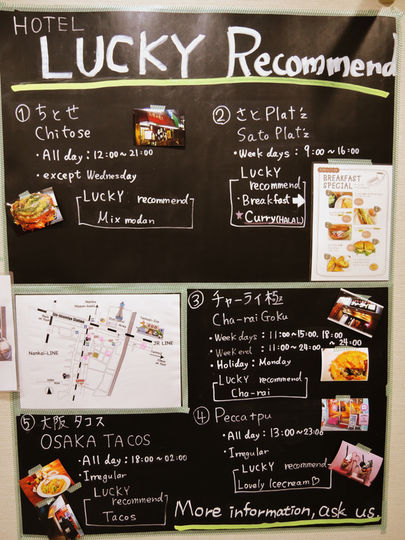 HOTEL
LUCKY Recommend
① ちとせ
Chitose
・All day : 12:00~21:00
・except Wednesday
LUCKY recommend
Mix modan
② さとPlat'z
Sato Plat'z
・Week days : 9:00~16:00
LUCKY
recommend
・Breakfast➡
★Curry(HALAL)
BREAKFAST
SPECIAL
Nankai-LINE
JR LINE
③ チャーライ
Cha-rai Goku
・Week days : 11:00~15:00, 18:00
~24:00
・Weekend : 11:00~24:00
・Holiday : Monday
LUCKY recommend
Cha-rai
④ Peccatpu
・All day : 13:00~23:00
・Irregular
LUCKY recommend
Lovely Icecream♡
⑤ 大阪 タコス
OSAKA TACOS
・All day : 18:00~02:00
・Irregular
LUCKY
recommend
Tacos
More information, ask us.